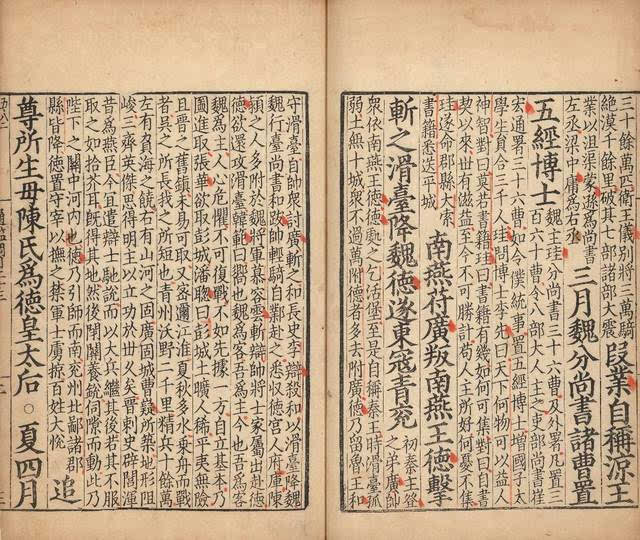 三十餘萬而衛王儀別將三萬騎
絕漠千餘里破其七部諸部大震
段業自稱涼王
業以沮渠蒙遜爲尚書
左丞梁中庸爲右丞
三月魏分尚書諸曹置
五經博士
魏主珪分尚書三十六曹及外署凡置三
百六十曹令八部大人主之吏部尚書崔
宏通署三十六曹如令僕統事置五經博士增國子太
學生員合三千人珪問博士李先曰天下何物可以益人
神智對曰莫若書籍珪曰書籍有幾如何可集對曰自書
契以來世有滋益至今不可勝計苟人主所好何憂不集
珪遂命郡縣大索
書籍悉送平城
南燕苻廣叛南燕王德擊
斬之滑臺降魏德遂東寇青兗
初秦主登
之弟廣帥
衆依南燕王德德處之乞活堡至是自稱秦王時滑臺孤
弱土無十城衆不過萬附德者多去附廣德乃留魯王和
守滑臺自帥衆討廣斬之和長史李辯殺和以滑臺降魏
魏行臺尚書和跋帥輕騎自鄴赴之悉收德宮人府庫陳
潁之人多附於魏將軍慕容雲斬辯帥將士家屬出赴德
德欲還攻滑臺韓範曰嚮也魏爲客吾爲主今也吾爲客
魏爲主人心危懼不可復戰不如先據一方自立基本乃
圖進取張華欲取彭城潘聰曰彭城土曠人稀平夷無險
且晉之舊鎮未易可取又密邇江淮夏秋多水乘舟而戰
者吳之所長我之所短也青州沃野二千里精兵十餘萬
左有負海之饒右有山河之固廣固城曹嶷所築地形阻
峻三齊英傑思得明主以立功於世久矣晉刺史辟閭渾
昔爲燕臣今宜遣辯士馳說而以大兵繼其後若其不服
取之如拾芥耳旣得其地然後閉關養銳伺隙而動此乃
陛下之關中河內也德乃引師而南兗州北鄙諸郡
縣皆降德置守宰以撫之禁軍士虜掠百姓大悅
追
尊所生母陳氏爲德皇太后○夏四月